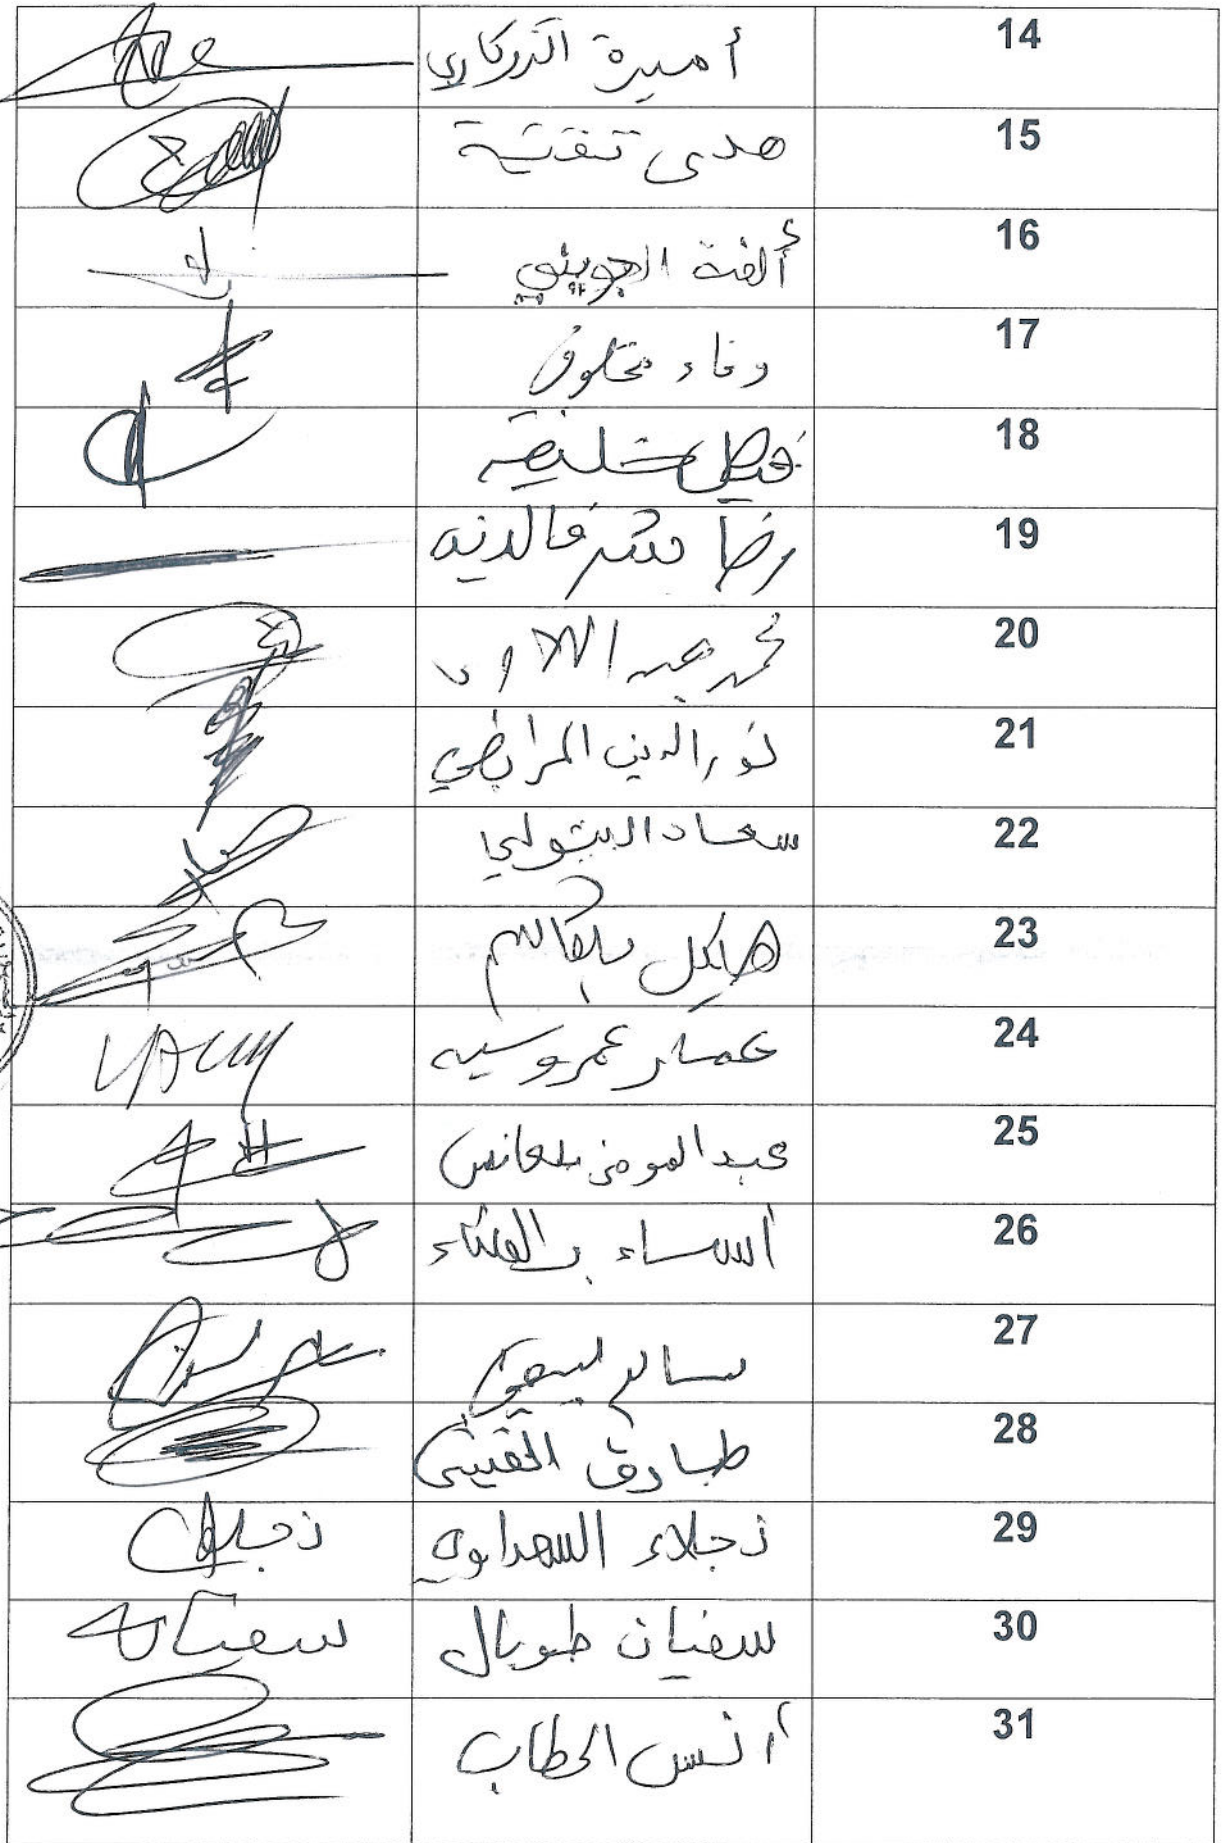 14 أميرة الدركاوي
15 هدى تنقتية
16 ألفة الجويني
17 وفاء مخلوف
18 فيصل خليفة
19 رضا شرف الدين
20 محمد عبد اللاوي
21 نور الدين المرابطي
22 سعاد البيولي
23 هيكل بلقاسم
24 عمار عمروسية
25 عبد المومن بلعانس
26 أسماء
27 سالم لبيض
28 طارق الفتيتي
29 نجلاء السعداوي
30 سفيان طوبال
31 أنس الحطاب